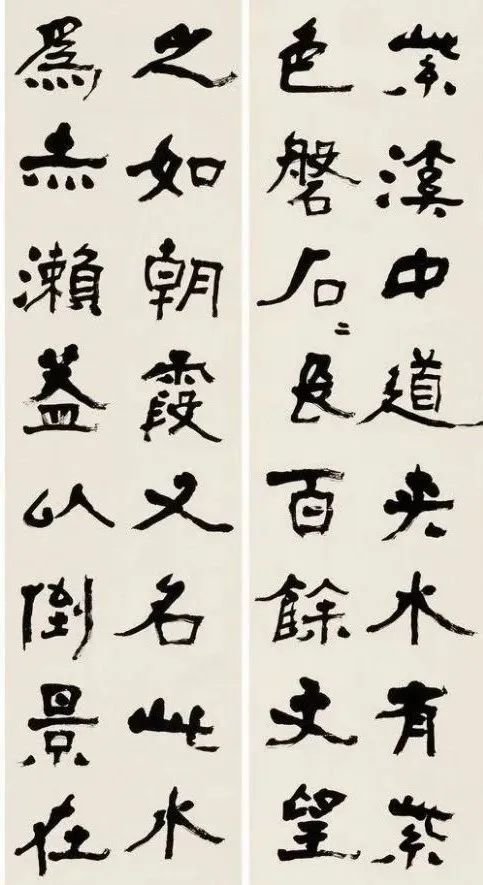 紫溪中道夾水有紫
色磐石〻長百餘丈望
之如朝霞又名此水
爲赤瀨蓋以倒景在